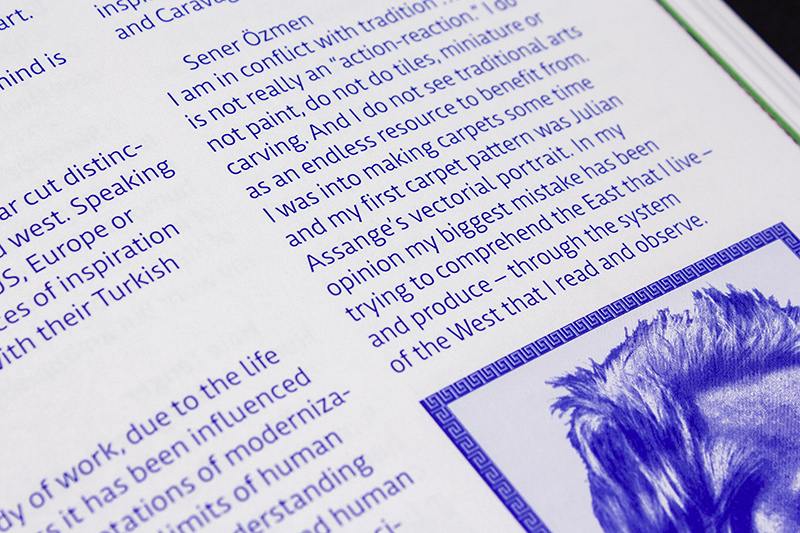 art.
hind is
ar cut distinc-
d west. Speaking
US, Europe or
ces of inspiration
with their Turkish
dy of work, due to the life
s it has been influenced
otations of moderniza-
limits of human
derstanding
nd human
ci-
inspi
and Carava
Sener Özmen
I am in conflict with tradition ...
is not really an “action-reaction.” I do
not paint, do not do tiles, miniature or
carving. And I do not see traditional arts
as an endless resource to benefit from.
I was into making carpets some time
and my first carpet pattern was Julian
Assange's vectorial portrait. In my
opinion my biggest mistake has been
trying to comprehend the East that I live –
and produce – through the system
of the West that I read and observe.